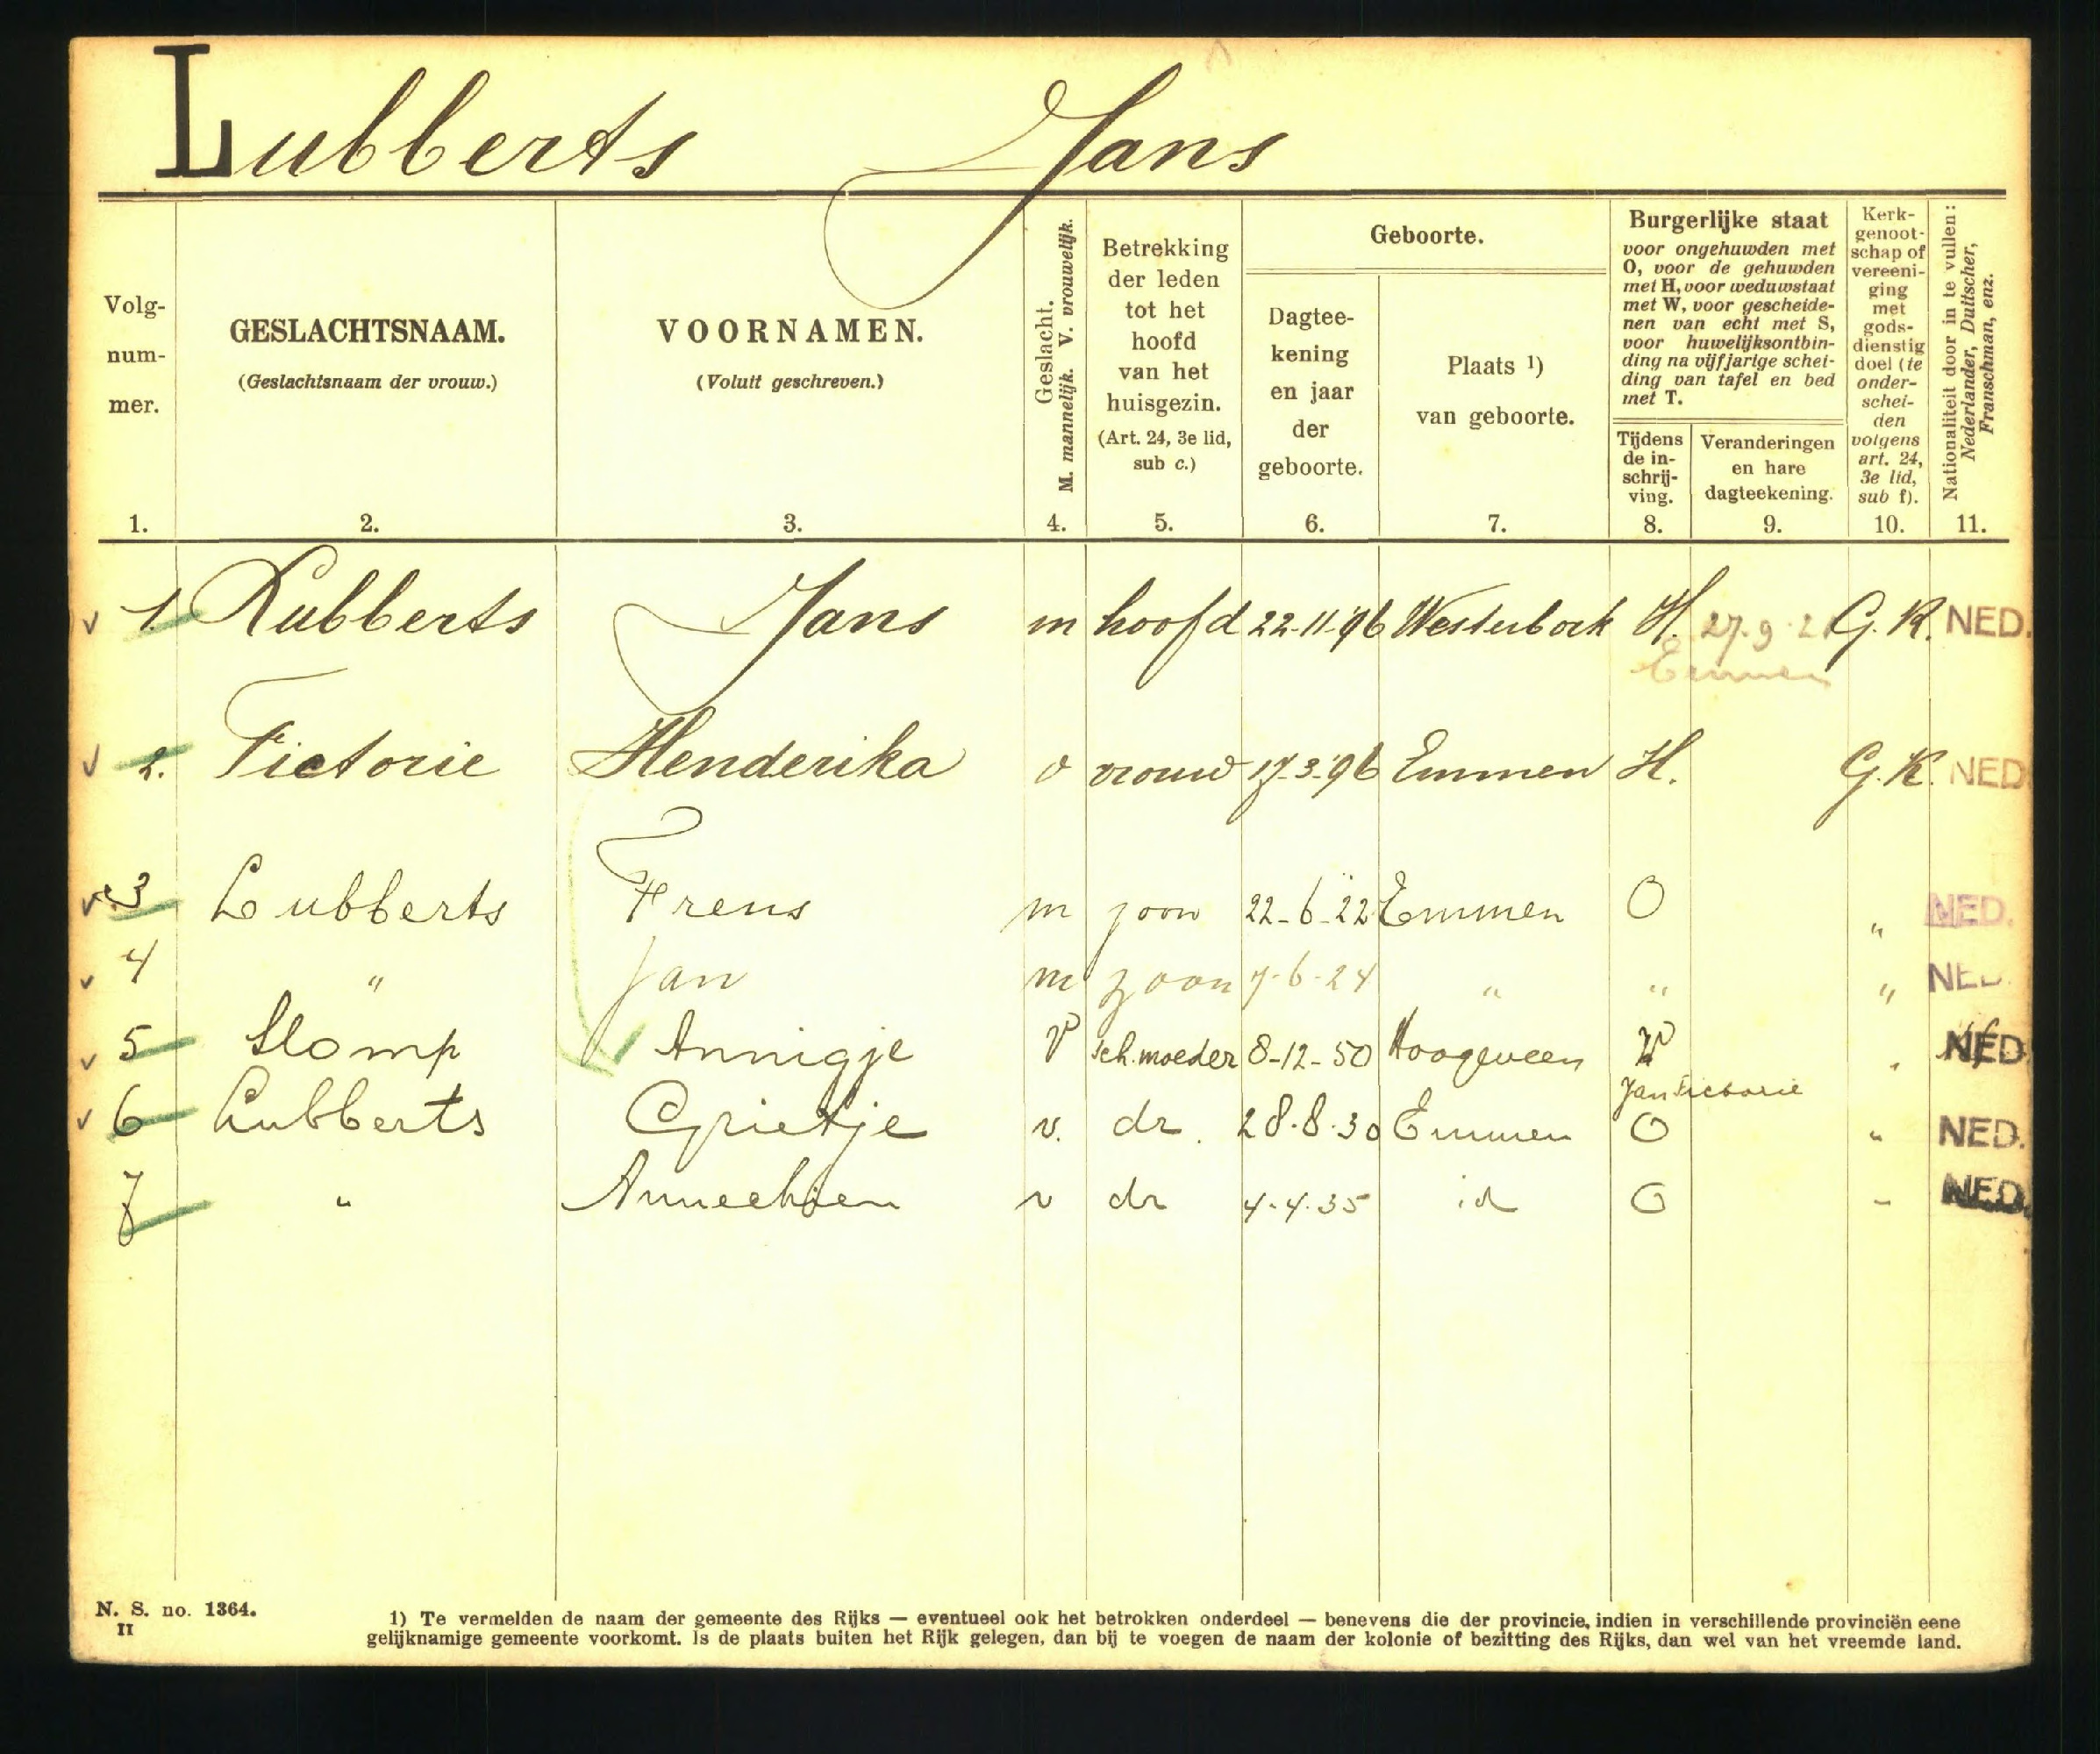 Lubberts Jans
Volg-
num-
mer.
1.
GESLACHTSNAAM.
(Geslachtsnaam der vrouw.)
2.
VOORNAMEN.
(Voluit geschreven.)
3.
Geslacht.
M. mannelijk. V. vrouwelijk.
4.
Betrekking
der leden
tot het
hoofd
van het
huisgezin.
(Art. 24, 3e lid,
sub c.)
5.
Geboorte.
Dagtee-
kening
en jaar
der
geboorte.
6.
Plaats 1)
van geboorte.
7.
Burgerlijke staat
voor ongehuwden met
O, voor de gehuwden
met H, voor weduwstaat
met W, voor gescheide-
nen van echt met S,
voor huwelijksontbin-
ding na vijfjarige schei-
ding van tafel en bed
met T.
Tijdens
de in-
schrij-
ving.
8.
Veranderingen
en hare
dagteekening.
9.
Kerk-
genoot-
schap of
vereeni-
ging
met
gods-
dienstig
doel (te
onder-
schei-
den
volgens
art. 24,
3e lid,
sub f).
10.
Nationaliteit door in te vullen:
Nederlander, Duitscher,
Franschman, enz.
11.
1 Lubberts Jans m hoofd 22-11-'96 Westerbork H. 27.9.21 G.K. NED.
Emmen
2. Fictorie Henderika v vrouw 17-3-'96 Emmen H. G.K. NED
3 Lubberts Frens m zoon 22-6-22 Emmen O " NED.
4 " Jan m zoon 7-6-24 " " " NED.
5 Slomp Annigje V sch.moeder 8-12-50 Hoogeveen W " NED
Jan Fictorie
6 Lubberts Grietje v. dr. 28.8.30 Emmen O " NED.
7 " Annechien v dr 4.4.35 id O " NED.
N. S. no. 1364.
II
1) Te vermelden de naam der gemeente des Rijks — eventueel ook het betrokken onderdeel — benevens die der provincie, indien in verschillende provinciën eene
gelijknamige gemeente voorkomt. Is de plaats buiten het Rijk gelegen, dan bij te voegen de naam der kolonie of bezitting des Rijks, dan wel van het vreemde land.